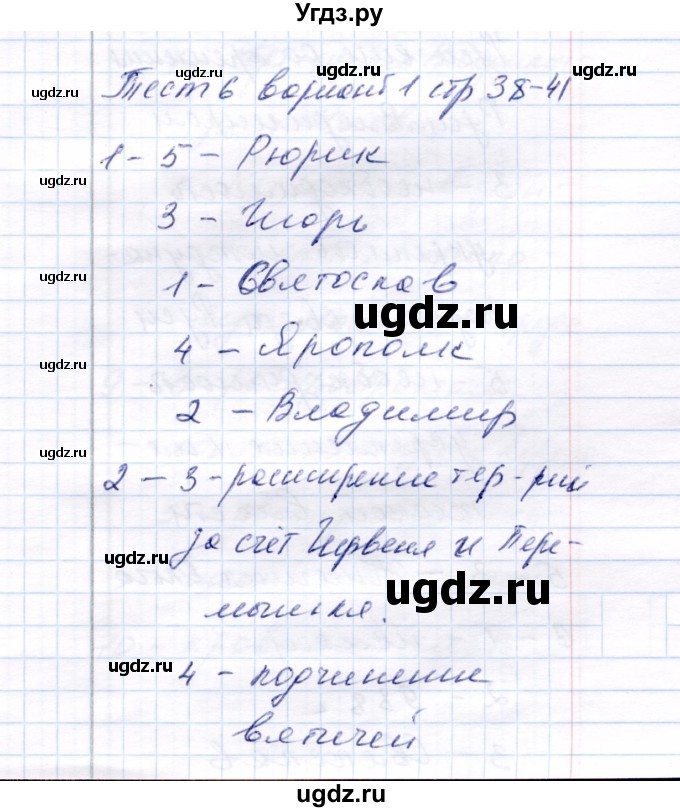 Угдз.ру
Тест 6 вариант 1 стр 38-41
1 - 5 - Рюрик
3 - Игорь
1 - Святослав
4 - Ярополк
2 - Владимир
2 - 3 - расширение тер-рии
за счёт Червеня и Пере-
мышля.
4 - подчинение
вятичей
ugdz.ru
ugdz.ru
ugdz.ru
ugdz.ru
ugdz.ru
ugdz.ru
ugdz.ru
ugdz.ru
ugdz.ru
ugdz.ru
ugdz.ru
ugdz.ru